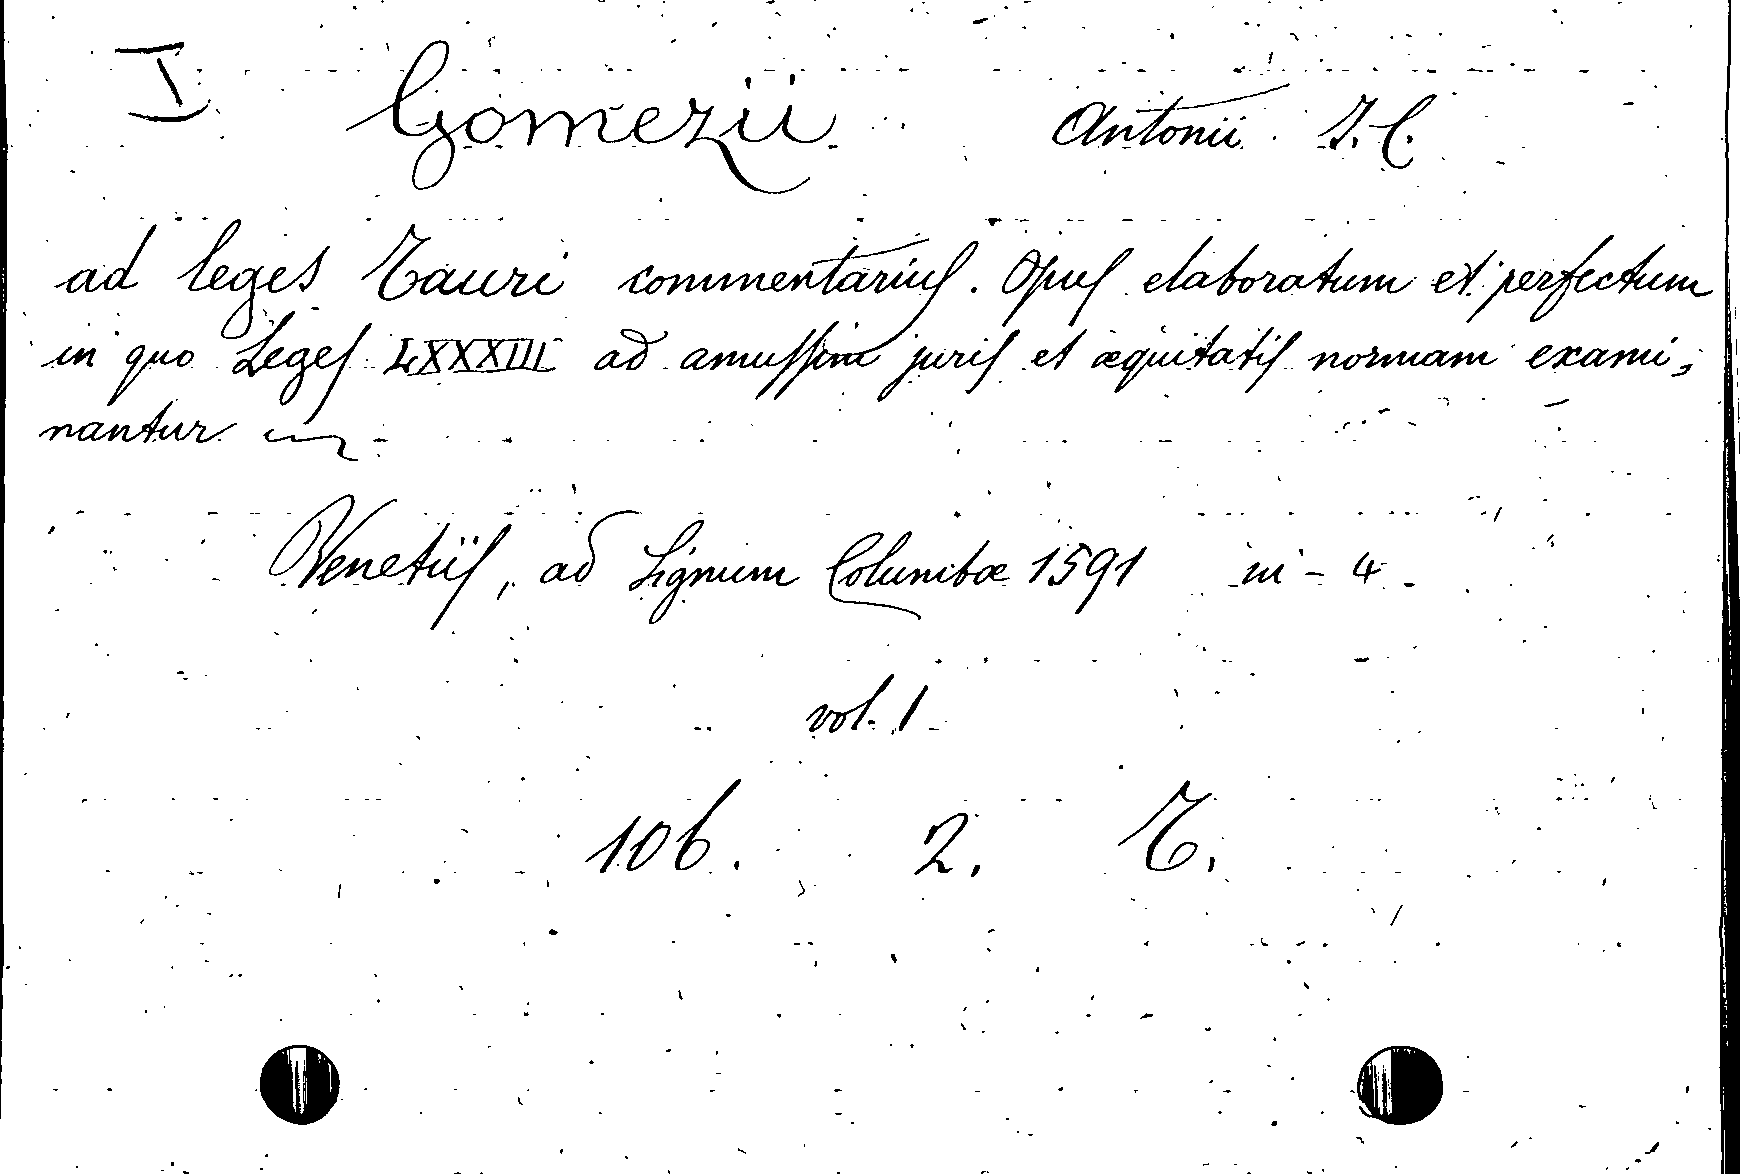 I Gomezii Antonii J. C.
ad leges Tauri commentarius. Opus elaboratum et perfectum
in quo Leges LXXXIII ad amussim juris et æquitatis normam exami-
nantur
Venetiis, ad Signum Columbæ 1591 in-4.
vol. 1
106. 2. T.